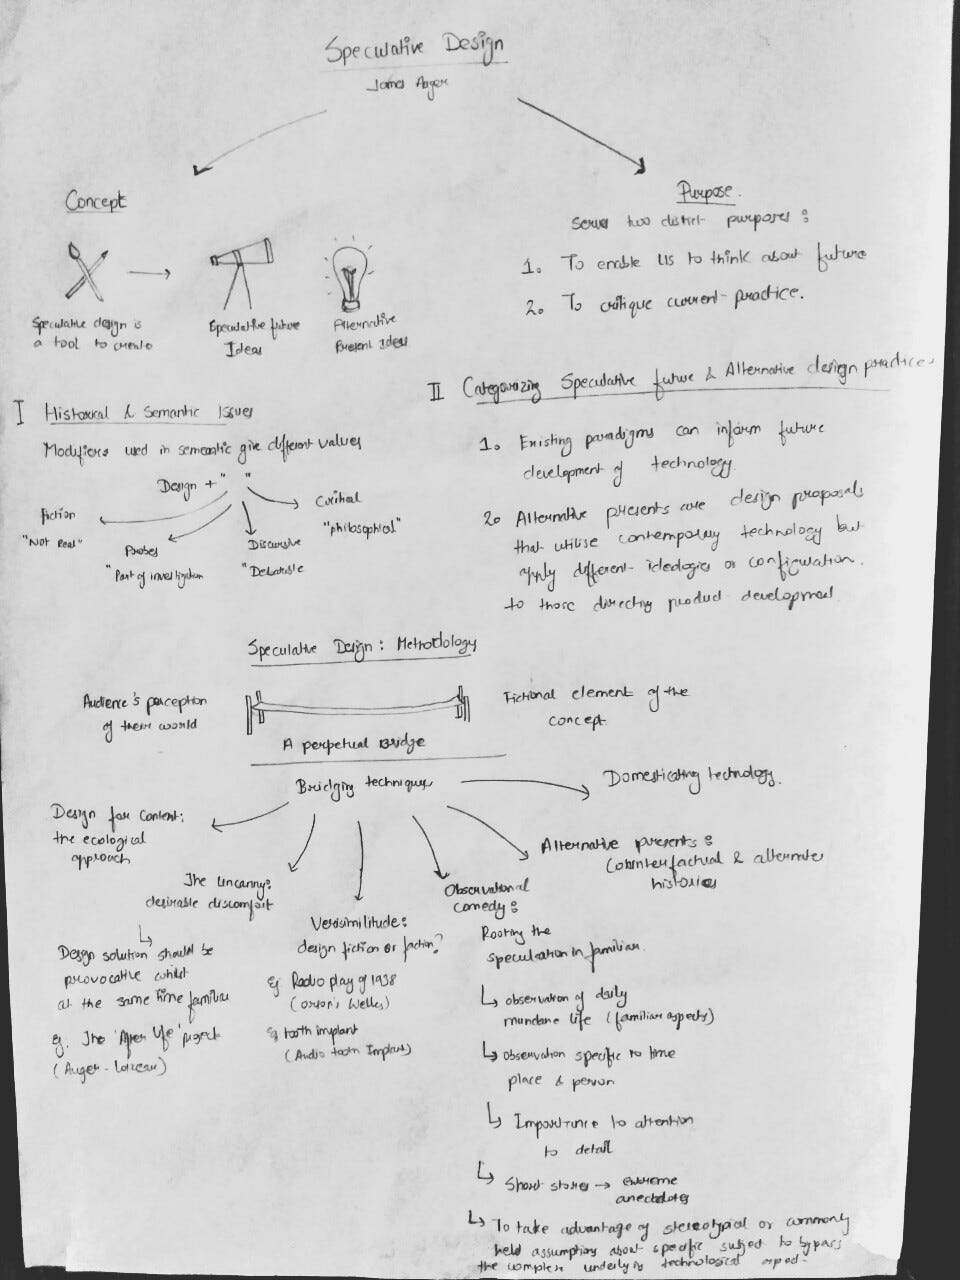 Speculative Design
James Auger
Concept
Speculative design is
a tool to create
Speculative future
Ideas
Alternative
Present Ideas
Purpose.
Serves two distict purposes :
1. To enable us to think about future
2. To critique current practice.
I Historical & Semantic Issues
Modifiers used in semantic give different values
Design + "   "
Fiction
"Not Real"
Probes
"Part of investigation
Discursive
"Debatable
Critical
"philosophial"
II Categorizing Speculative future & Alternative design practice.
1. Existing paradigms can inform future
development of technology.
2. Alternative presents are design proposals
that utilise contemporary technology but
apply different ideologies or configuration.
to those directing product development.
Speculative Design: Methodology
Audience's perception
of their world
Fictional element of the
concept.
A perpetual Bridge
Bridging techniques
Domesticating technology.
Design for content:
the ecological
approach
The uncanny:
desirable discomfort
Design solution should be
provocative whilst
at the same time familiar
eg. The 'After life' project
(Auger-Loizeau)
Verisimilitude:
design fiction or faction?
eg Radio play of 1938
(Orson's Welles)
eg tooth implant
(Audio tooth Implant)
Observational
comedy:
Rooting the
speculation in familiar.
observation of daily
mundane life (familiar aspects)
observation specific to time
place & person
Importance to attention
to detail
Short stories → extreme
anecdotes
To take advantage of stereotypial or commonly
held assumptions about specific subject to bypass
the complex underlying technological aspect.
Alternative presents :
Counterfactual & alternate
histories